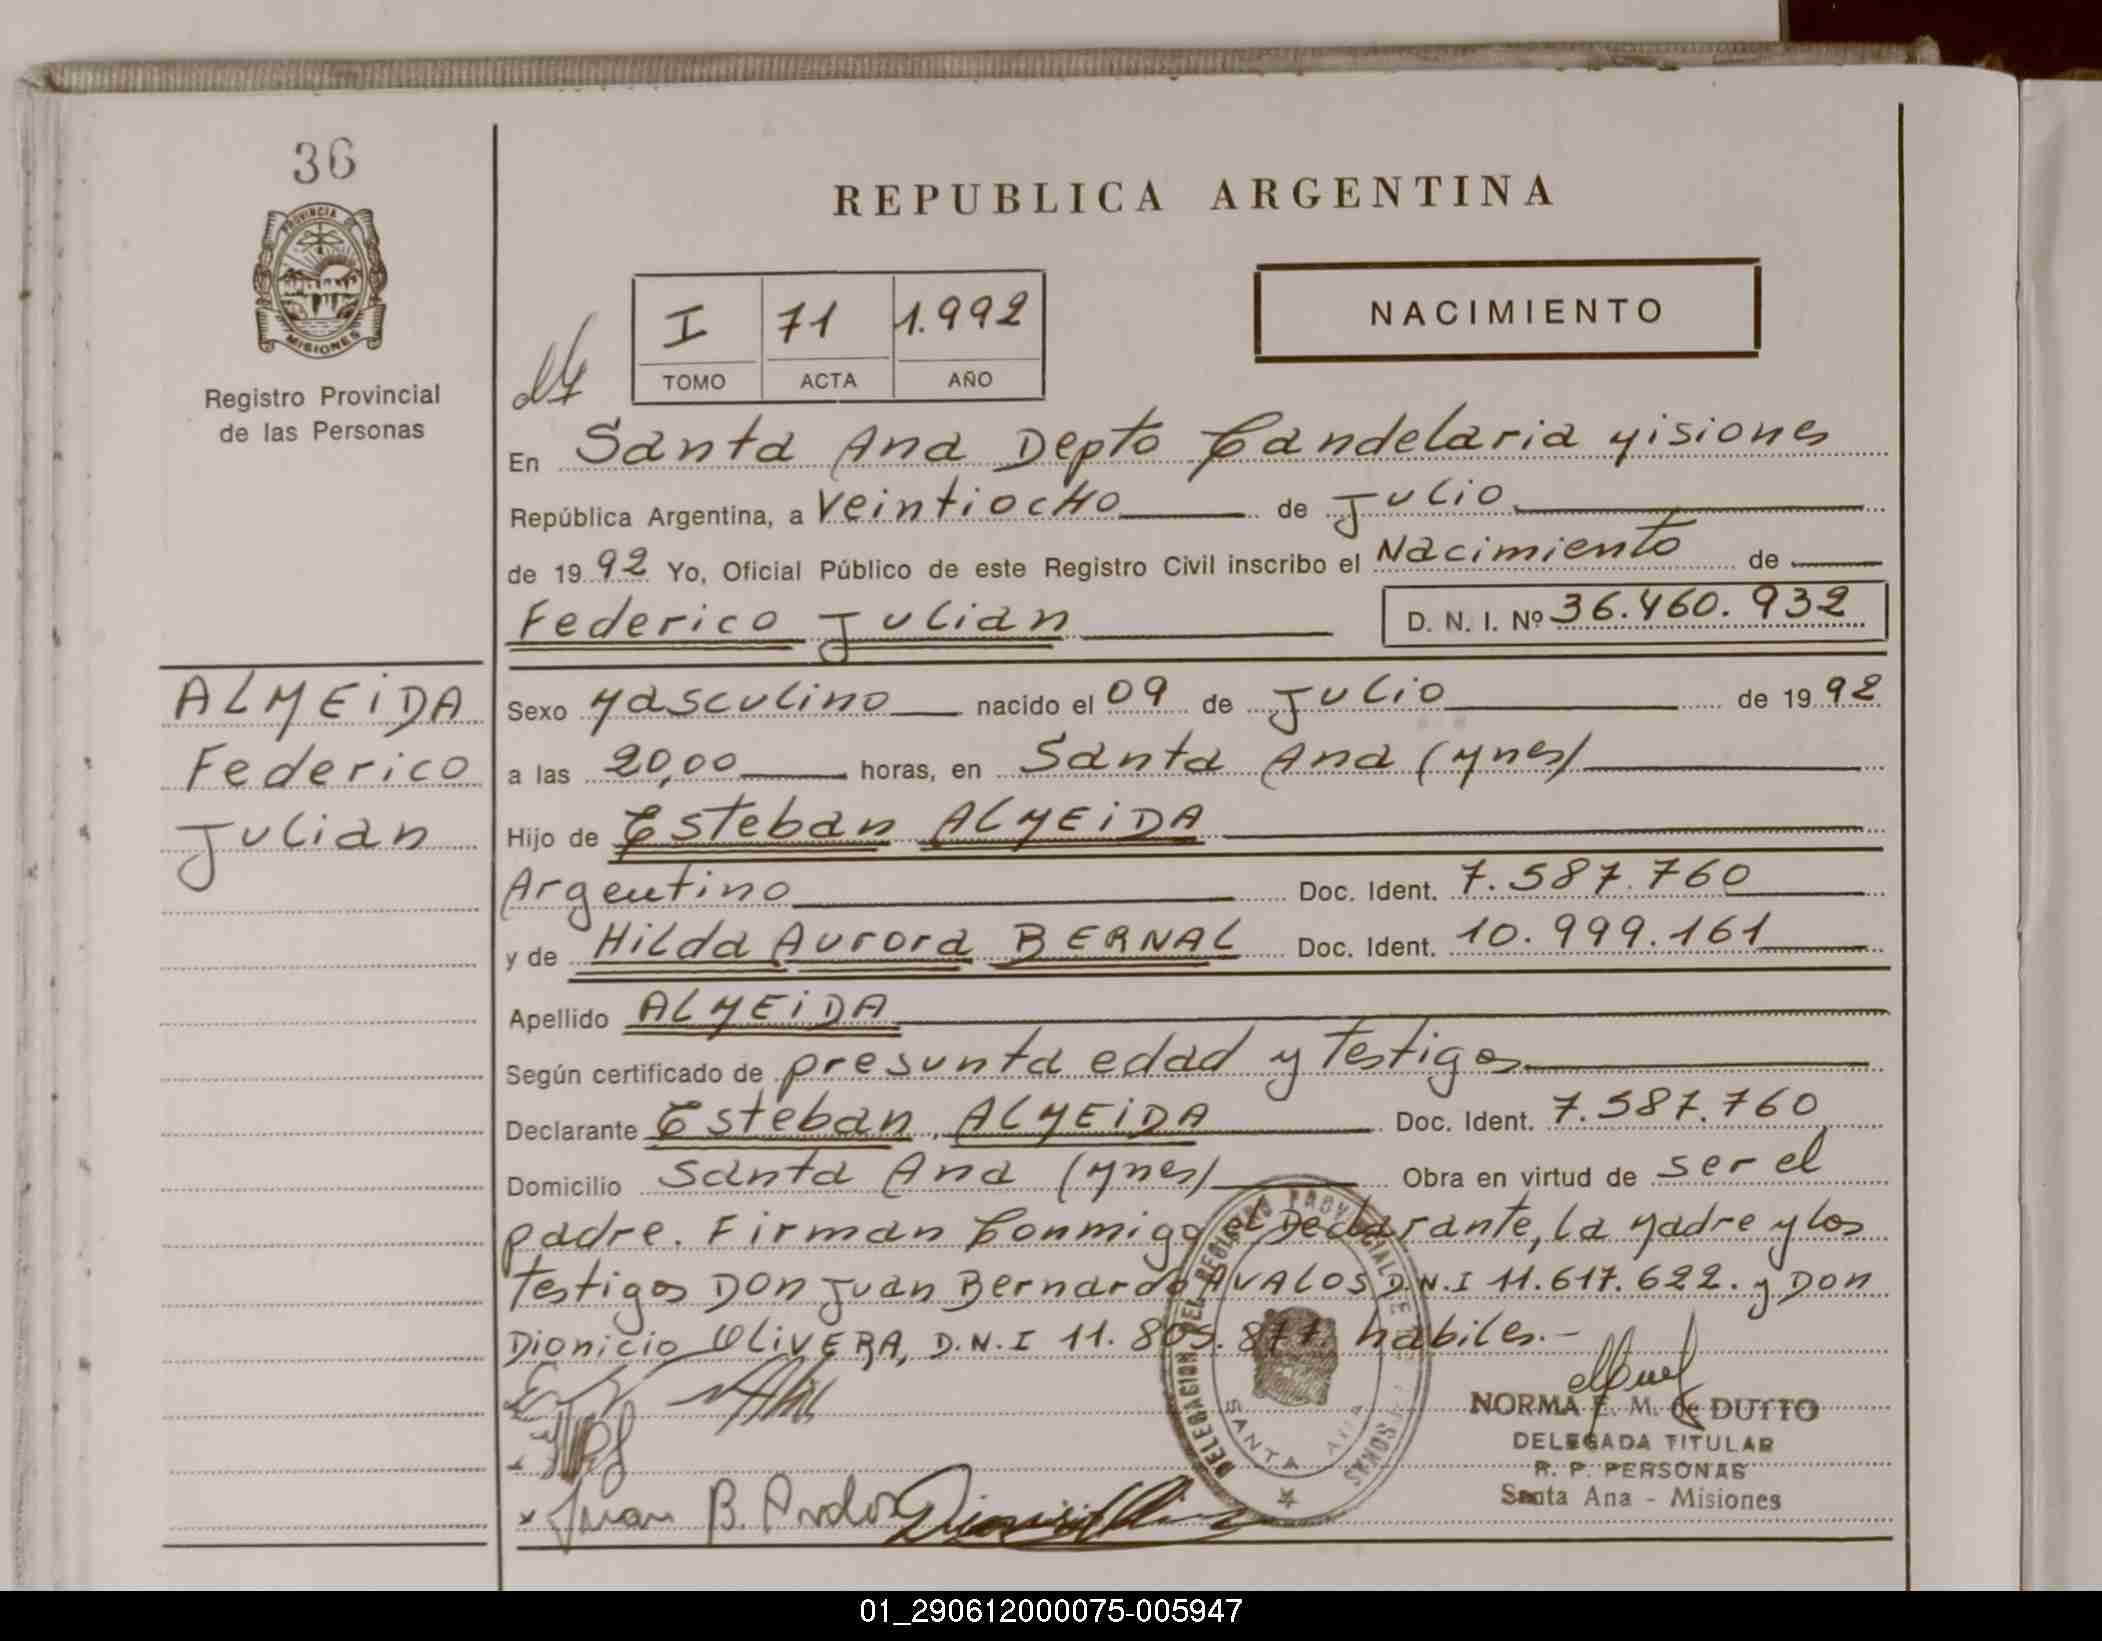 36
PROVINCIA
MISIONES
Registro Provincial
de las Personas
REPUBLICA ARGENTINA
NACIMIENTO
I 71 1.992
TOMO ACTA AÑO
En Santa Ana Depto Candelaria Misiones
República Argentina, a Veintiocho de Julio
de 1992 Yo, Oficial Público de este Registro Civil inscribo el Nacimiento de
Federico Julian D. N. I. Nº 36.460.932
ALMEIDA
Federico
Julian
Sexo Masculino nacido el 09 de Julio de 1992
a las 20,00 horas, en Santa Ana (Mnes)
Hijo de Esteban ALMEIDA
Argentino Doc. Ident. 7.587.760
y de Hilda Aurora BERNAL Doc. Ident. 10.999.161
Apellido ALMEIDA
Según certificado de presunta edad y Testigos
Declarante Esteban ALMEIDA Doc. Ident. 7.587.760
Domicilio Santa Ana (Mnes) Obra en virtud de ser el
padre. Firman Conmigo el Declarante, la Madre y los
Testigos Don Juan Bernardo AVALOS D.N.I 11.617.622. y Don
Dionicio OLIVERA, D.N.I 11.805.877. habiles.-
DELEGACION DEL REGISTRO PROVINCIAL DE PERSONAS
SANTA ANA
NORMA E. M. de DUTTO
DELEGADA TITULAR
R. P. PERSONAS
Santa Ana - Misiones
x Juan B.
01_290612000075-005947